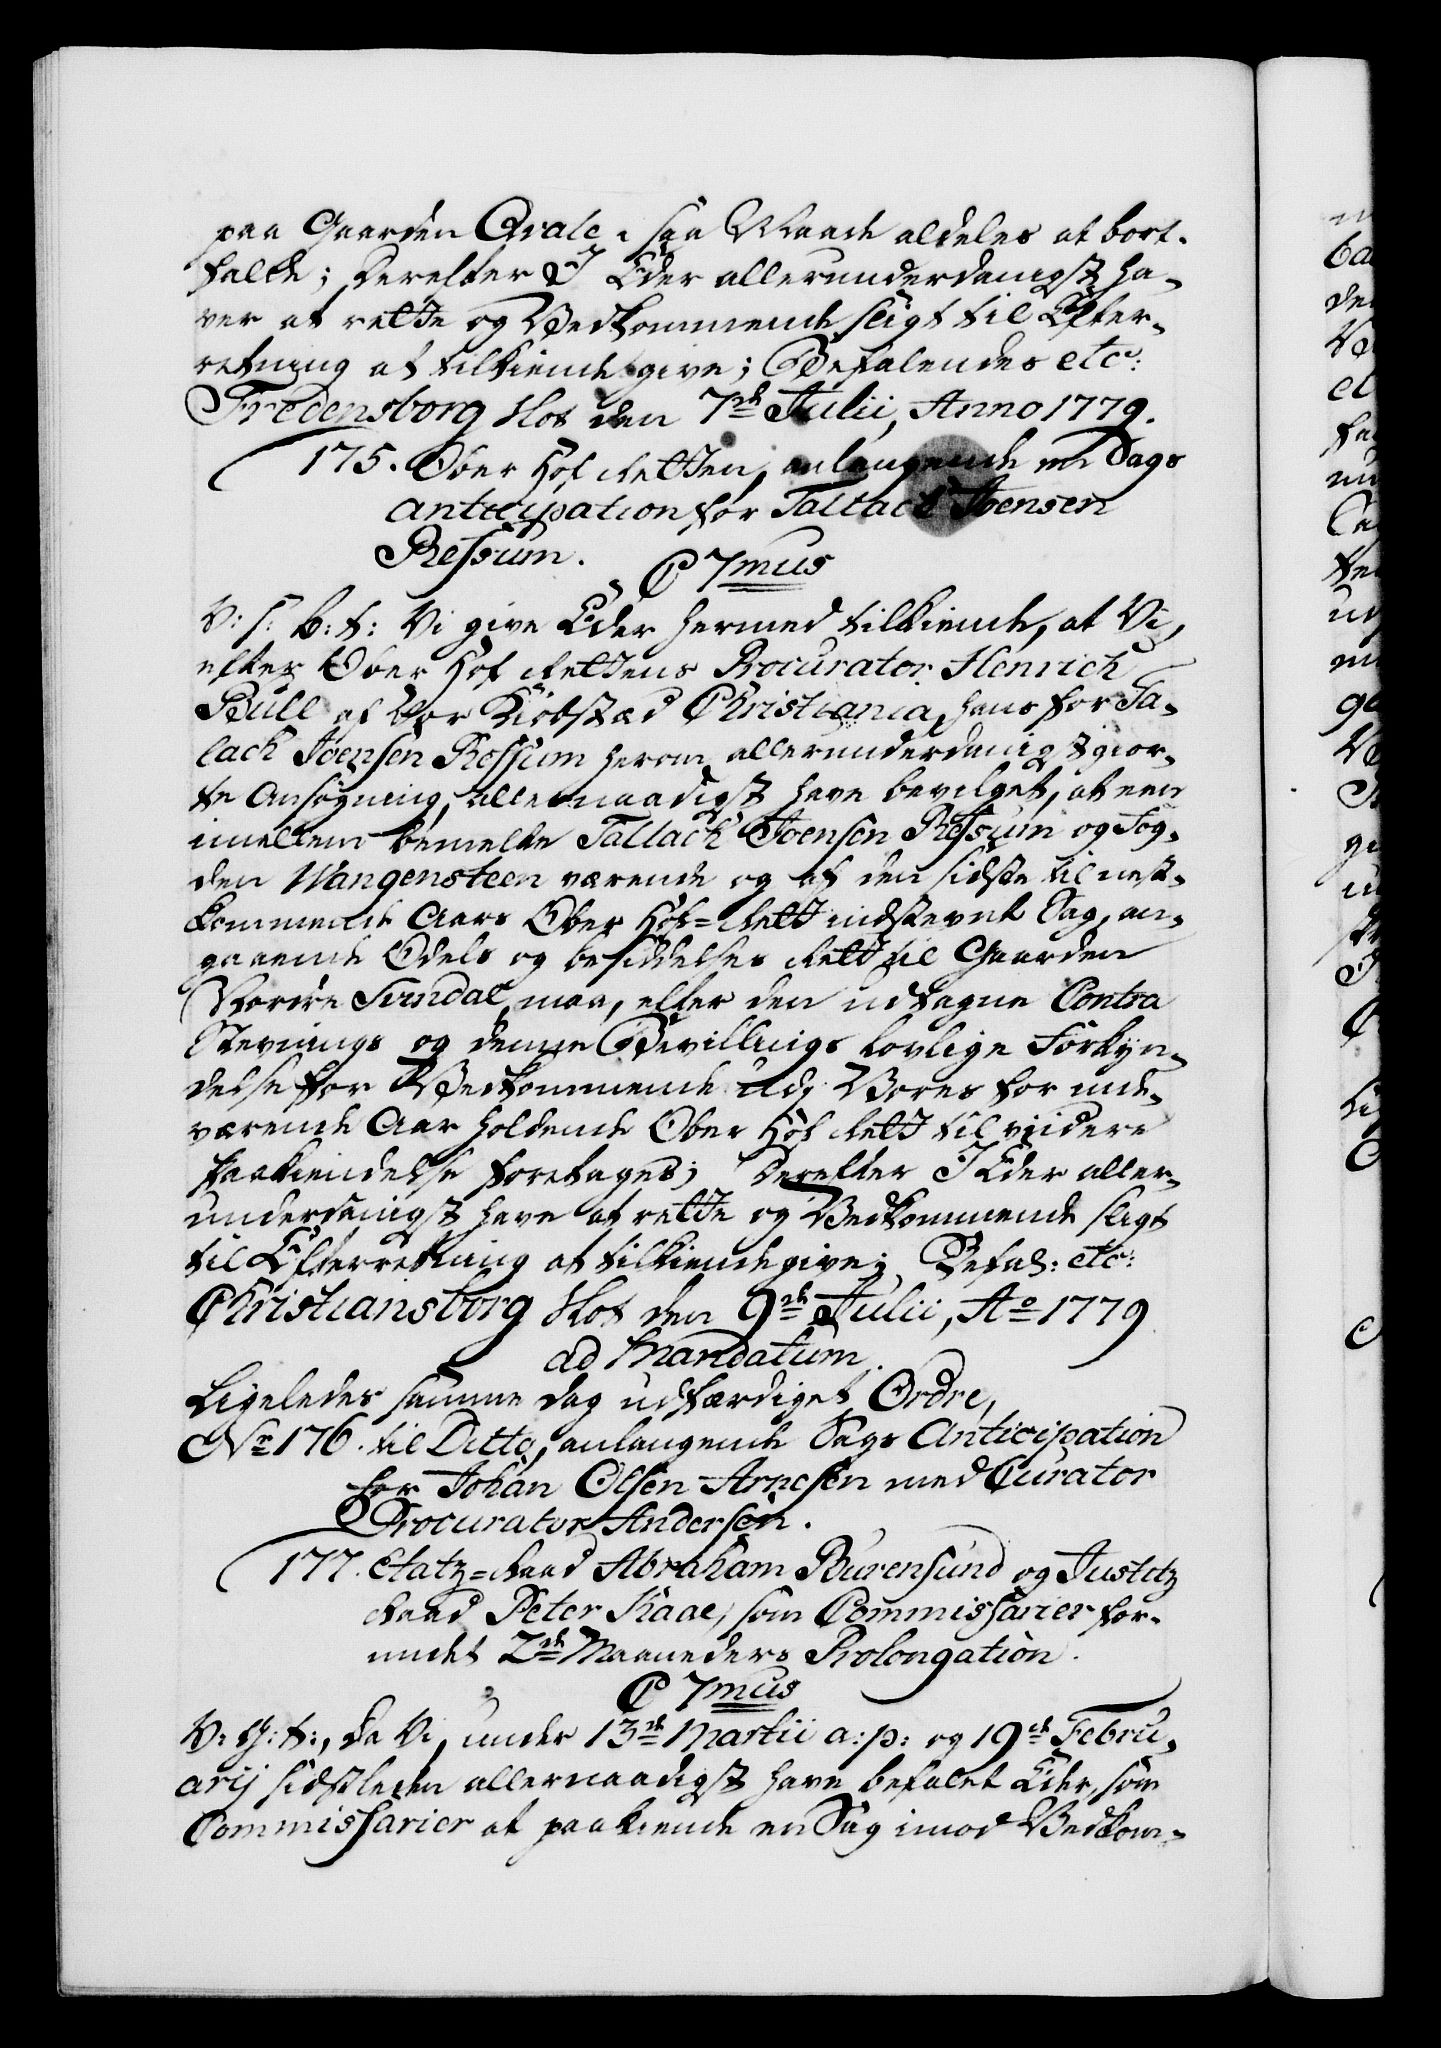 paa Gaarden Qvale i saa Maade aldeles at bort-
falde; Derefter I Eder allerunderdanigst ha-
ver at rette og Vedkommende sligt til Efter-
retning at tilkiende give; Befalendes etc:
Fredensborg Slot den 7de Julii, Anno 1779.
175. Ober Hof Retten, anlangende en Sags
Anticipation for Tallack Joensen
Ressum.
C 7mus
V: S: B: t: Vi give Eder hermed tilkiende, at Vi,
efter Ober Hof Rettens Procurator Henrich
Bull af Vor Kiøbstæd Christiania, hans for Ta-
lack Joensen Ressum herom allerunderdanigst gior-
te Ansøgning, allernaadigst have bevilget, at een
imellem bemelte Tallack Joensen Ressum og Fog-
den Wangensteen værende og af den sidste til nest-
kommende Aars Ober Hof-Rett indstevnt Sag, an-
gaaende Odels og besiddelses Rett til Gaarden
Nordre Svindal, maa, efter den udtagne Contra
Stevnings og denne Bevillings lovlige Forkyn-
delse for Vedkommende udj Vores for inde-
værende Aar holdende Ober Hof Rett til videre
Paakiendelse foretages; Derefter I Eder aller-
underdanigst have at rette og Vedkommende sligt
til Efterretning at tilkiendegive; Befal: etc:
Christiansborg Slot den 9de Julii, Ao 1779
ad Mandatum.
Ligeledes samme Dag udfærdiget Ordre,
No 176. til Ditto, anlangende Sags Anticipation
for Johan Olsen Arnesen med Curator
Procurator Andersen.
177. Etatz-Raad Abraham Burensund og Justitz
Raad Peter Kaae, som Commissarier for-
undt 2de Maaneders Prolongation.
C 7mus
V: G: t:, Da Vi, under 13de Martii a: p: og 19de Febru-
arij sidstleden allernaadigst have befalet Eder, som
Commissarier at paakiende en Sag imod Vedkom-